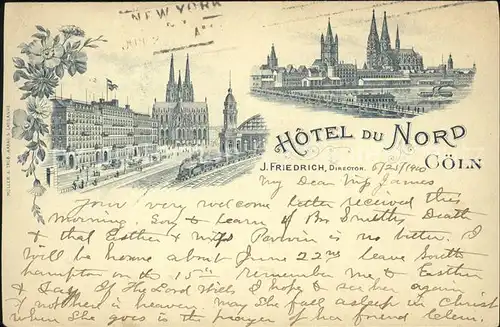 NEW YORK
HÔTEL DU NORD
J. FRIEDRICH, DIRECTOR.
CÖLN
5/25/1900
My Dear Miss James
Your very welcome letter received this
morning. Sory to learn of Bro Smith, Death
& that Esther & Miss is no better. I
will be home about June 22nd leave South
hampton on the 15th remember me to Esther
& say If the Lord Wills I hope to see her again
if not then in heaven. may she fall asleep in Christ
when she goes is the prayer of her friend Clem.